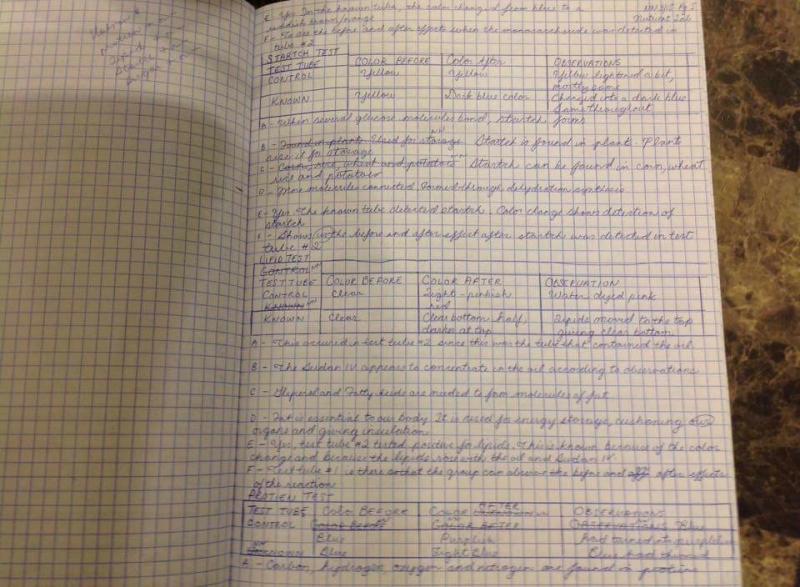 E - Yes. In the known tube, the color changed from blue to a
reddish brown/orange
F - To see the before and after effects when the monosaccharide was detected in
tube #2
STARTCH TEST
TEST TUBE COLOR BEFORE Color After OBSERVATIONS
CONTROL Yellow Yellow Yellow lightened a bit,
mostly same
KNOWN Yellow Dark blue color Changed into a dark blue
A - When several glucose molecules bond, startch forms
B - Found in plants Used for storage. Startch is found in plants. Plants
use it for storage
C - Corn, rice, wheat and potatoes Startch can be found in corn, wheat,
rice and potatoes
D - More molecules connected. Formed through dehydration synthesis
E - Yes. The known tube detected startch. Color change shows detection of
startch
F - Shows the before and after effect after startch was detected in test
tube #2
LIPID TEST
CONTROL
TEST TUBE COLOR BEFORE COLOR AFTER OBSERVATION
CONTROL Clear Light-pinkish Water dyed pink
KNOWN red
KNOWN Clear Clear bottom half, Lipids moved to the top
darker at top giving clear bottom
A - This occured in test tube #2 since this was the tube that contained the oil.
B - The Sudan IV appears to concentrate in the oil according to observations
C - Glycerol and Fatty Acids are needed to form molecules of fat
D - Fat is essential to our body. It is used for energy storage, cushioning our
organs and giving insulation.
E - Yes, test tube #2 tested positive for lipids. This is known because of the color
change and because the lipids rose with the oil and Sudan IV
F - Test tube #1 is there so that the group can observe the before and after effects
of the reaction
PROTIEN TEST
TEST TUBE Color BEFORE COLOR AFTER OBSERVATIONS
CONTROL COLOR BEFORE COLOR AFTER OBSERVATIONS Blue
Blue Purplish had turned into purplish
KNOWN Blue Light Blue Blue had
A - Carbon, hydrogen, oxygen and nitrogen are found in protiens